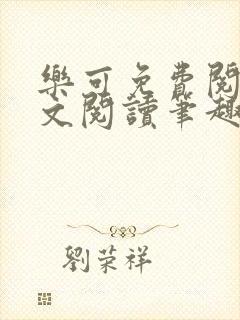 樂可免費閱
文閱讀筆趣
劉荣祥